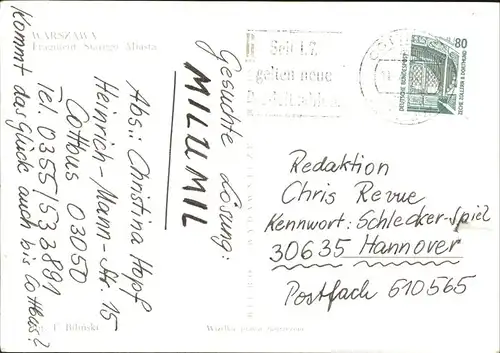 WARSZAWA
Fragment Starego Miasta
Gesuchte Lösung:
MILUMIL
Abs.: Christina Hopf
Heinrich-Mann-Str. 15
Cottbus 03050
Tel. 0355/533891
Kommt das Glück auch bis Cottbus?
Seit 1.7.
gelten neue
80
DEUTSCHE BUNDESPOST
ZECHE ZOLLERN II DORTMUND
Redaktion
Chris Revue
Kennwort: Schlecker-Spiel
30635 Hannover
Postfach 610565
T. Biliński